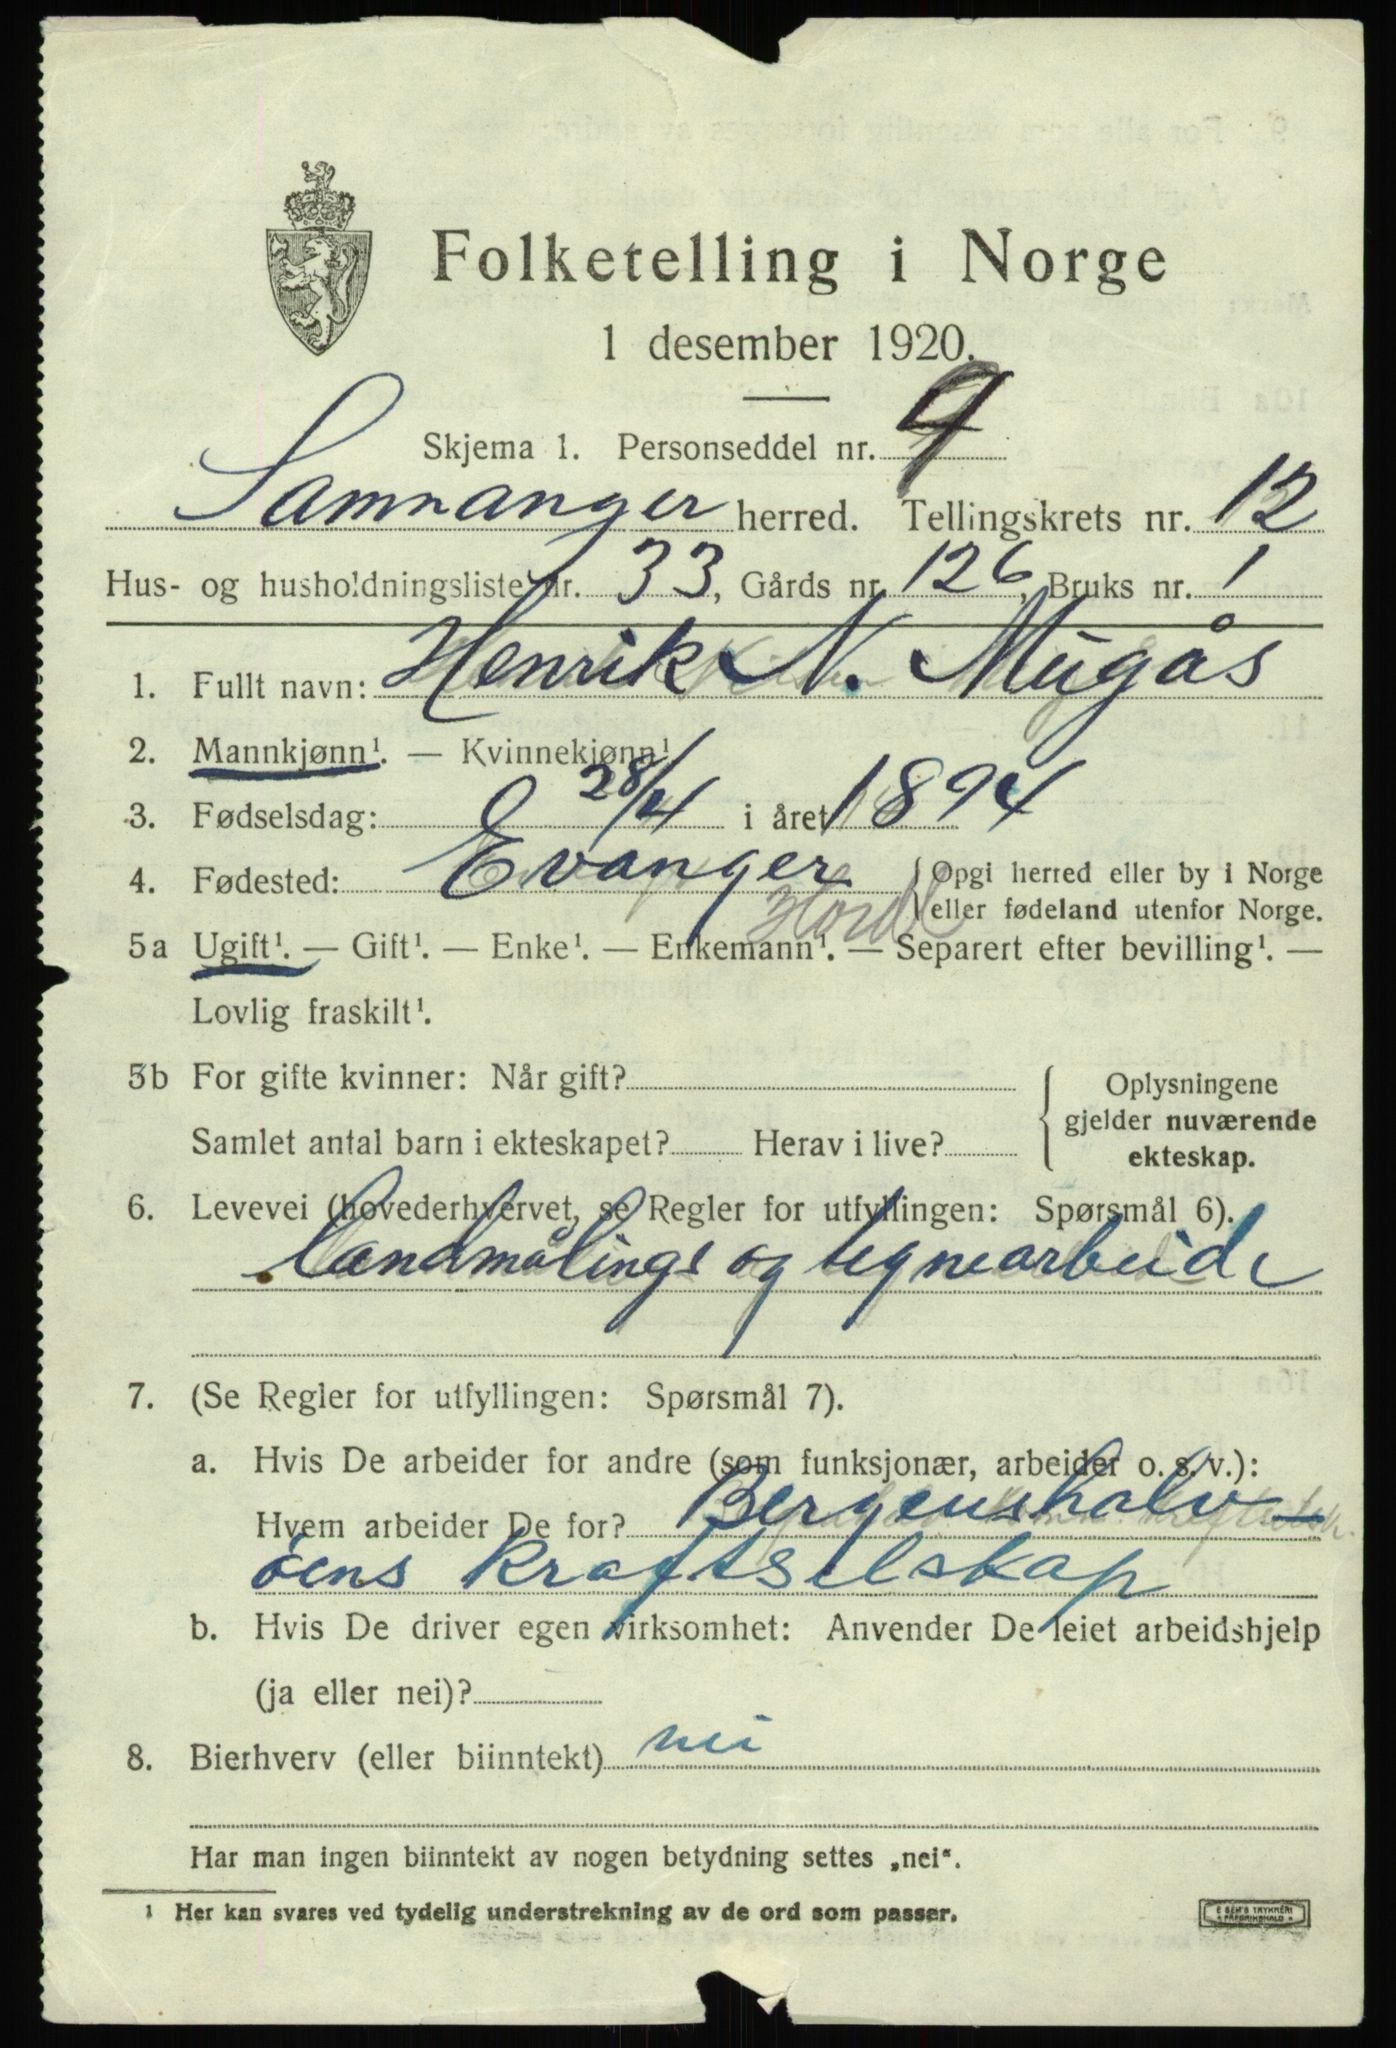 Folketelling i Norge
1 desember 1920.
Skjema 1. Personseddel nr. 9
Samnanger herred. Tellingskrets nr. 12
Hus- og husholdningsliste nr. 33, Gårds nr. 126, Bruks nr. 1
1. Fullt navn: Henrik N. Mugås
2. Mannkjønn¹. — Kvinnekjønn¹.
3. Fødselsdag: 28/4 i året 1894
4. Fødested: Evanger { Opgi herred eller by i Norge
Hordl eller fødeland utenfor Norge.
5a Ugift¹. — Gift¹. — Enke¹. — Enkemann¹. — Separert efter bevilling¹. —
Lovlig fraskilt¹.
5b For gifte kvinner: Når gift? { Oplysningene
gjelder nuværende
Samlet antal barn i ekteskapet? Herav i live? ekteskap.
6. Levevei (hovederhvervet, se Regler for utfyllingen: Spørsmål 6).
landmålings og tegnearbeide
7. (Se Regler for utfyllingen: Spørsmål 7).
a. Hvis De arbeider for andre (som funksjonær, arbeider o. s. v.):
Hvem arbeider De for? Bergenshalv-
öens kraftselskap
b. Hvis De driver egen virksomhet: Anvender De leiet arbeidshjelp
(ja eller nei)?
8. Bierhverv (eller biinntekt) nei
Har man ingen biinntekt av nogen betydning settes „nei“.
¹ Her kan svares ved tydelig understrekning av de ord som passer.
E SEM'S TRYKKERI
FREDRIKSHALD